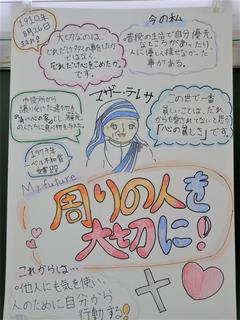 1910年
8月26日
生まれる
今の私
大切なのは、
どれだけ多くの事をしたか
ではなく、
どれだけ心をこめたか
です。
普段の生活で自分優先
なところがあったり、
人に優しく接せなかった
事がある。
マザーテレサ
この世で一番
貧しいことは、だれ
からも愛されてないと思う
「心の貧しさ」です。
1979年
ノーベル平和賞
受賞
My future
周りの人を
大切に!
これからは…
他人にも気を使い、
人のために自分から
行動する!